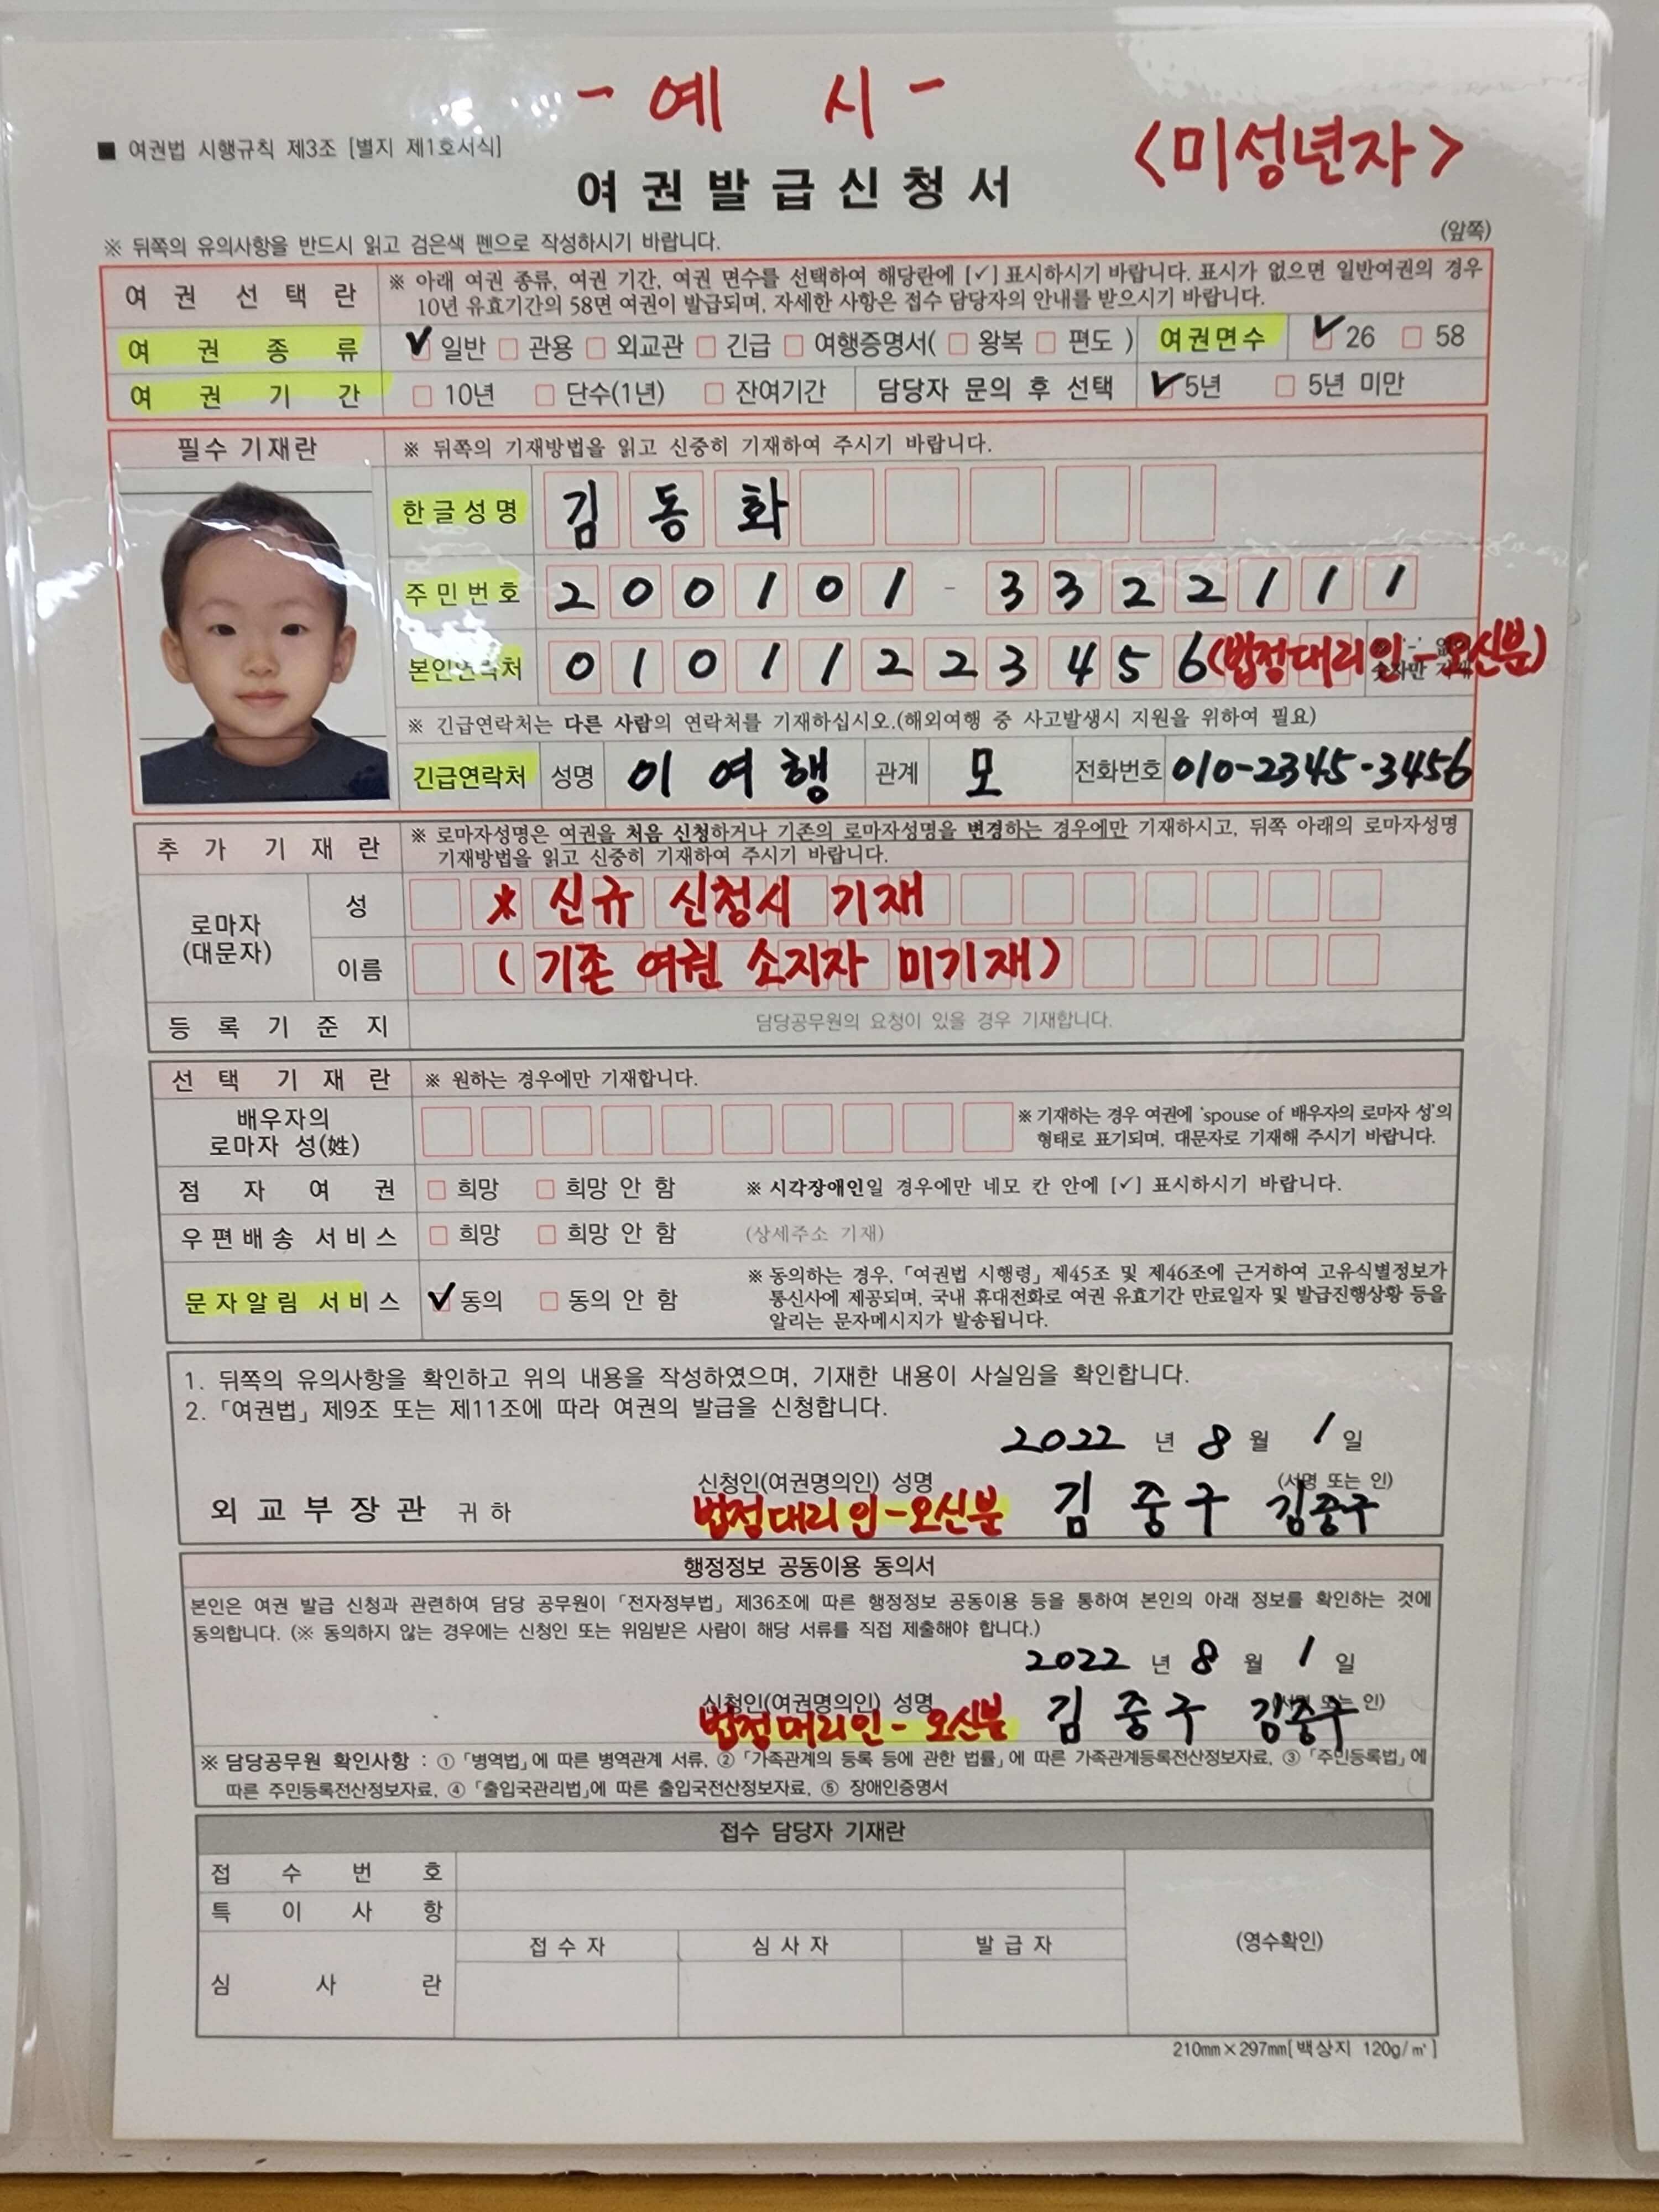 - 예 시 -
<미성년자>
■ 여권법 시행규칙 제3조 [별지 제1호서식]
여권발급신청서
※ 뒤쪽의 유의사항을 반드시 읽고 검은색 펜으로 작성하시기 바랍니다.
(앞쪽)
여 권 선 택 란
※ 아래 여권 종류, 여권 기간, 여권 면수를 선택하여 해당란에 [✓] 표시하시기 바랍니다. 표시가 없으면 일반여권의 경우
10년 유효기간의 58면 여권이 발급되며, 자세한 사항은 접수 담당자의 안내를 받으시기 바랍니다.
여 권 종 류 ✓ 일반 □ 관용 □ 외교관 □ 긴급 □ 여행증명서( □ 왕복 □ 편도 ) 여권면수 ✓ 26 □ 58
여 권 기 간 □ 10년 □ 단수(1년) □ 잔여기간 담당자 문의 후 선택 ✓ 5년 □ 5년 미만
필수 기재란 ※ 뒤쪽의 기재방법을 읽고 신중히 기재하여 주시기 바랍니다.
한글성명 김 동 화
주민번호 2 0 0 1 0 1 - 3 3 2 2 1 1 1
본인연락처 0 1 0 1 1 2 2 3 4 5 6 (법정대리인-오신분)
※ 긴급연락처는 다른 사람의 연락처를 기재하십시오.(해외여행 중 사고발생시 지원을 위하여 필요)
긴급연락처 성명 이 여 행 관계 모 전화번호 010-2345-3456
추 가 기 재 란
※ 로마자성명은 여권을 처음 신청하거나 기존의 로마자성명을 변경하는 경우에만 기재하시고, 뒤쪽 아래의 로마자성명
기재방법을 읽고 신중히 기재하여 주시기 바랍니다.
로마자
(대문자)
성 * 신규 신청시 기재
이름 (기존 여권 소지자 미기재)
등 록 기 준 지 담당공무원의 요청이 있을 경우 기재합니다.
선 택 기 재 란 ※ 원하는 경우에만 기재합니다.
배우자의
로마자 성(姓)
※ 기재하는 경우 여권에 'spouse of 배우자의 로마자 성'의
형태로 표기되며, 대문자로 기재해 주시기 바랍니다.
점 자 여 권 □ 희망 □ 희망 안 함 ※ 시각장애인일 경우에만 네모 칸 안에 [✓] 표시하시기 바랍니다.
우편배송 서비스 □ 희망 □ 희망 안 함 (상세주소 기재)
문자알림 서비스 ✓ 동의 □ 동의 안 함
※ 동의하는 경우, 「여권법 시행령」 제45조 및 제46조에 근거하여 고유식별정보가
통신사에 제공되며, 국내 휴대전화로 여권 유효기간 만료일자 및 발급진행상황 등을
알리는 문자메시지가 발송됩니다.
1. 뒤쪽의 유의사항을 확인하고 위의 내용을 작성하였으며, 기재한 내용이 사실임을 확인합니다.
2. 「여권법」 제9조 또는 제11조에 따라 여권의 발급을 신청합니다.
2022 년 8 월 1 일
신청인(여권명의인) 성명 (서명 또는 인)
외 교 부 장 관 귀 하 법정대리인-오신분 김 중 구 김중구
행정정보 공동이용 동의서
본인은 여권 발급 신청과 관련하여 담당 공무원이 「전자정부법」 제36조에 따른 행정정보 공동이용 등을 통하여 본인의 아래 정보를 확인하는 것에
동의합니다. (※ 동의하지 않는 경우에는 신청인 또는 위임받은 사람이 해당 서류를 직접 제출해야 합니다.)
2022 년 8 월 1 일
신청인(여권명의인) 성명 (서명 또는 인)
법정대리인 - 오신분 김 중 구 김중구
※ 담당공무원 확인사항 : ① 「병역법」에 따른 병역관계 서류, ② 「가족관계의 등록 등에 관한 법률」에 따른 가족관계등록전산정보자료, ③ 「주민등록법」에
따른 주민등록전산정보자료, ④ 「출입국관리법」에 따른 출입국전산정보자료, ⑤ 장애인증명서
접수 담당자 기재란
접 수 번 호
특 이 사 항
접 수 자 심 사 자 발 급 자 (영수확인)
심 사 란
210mm×297mm[백상지 120g/㎡]